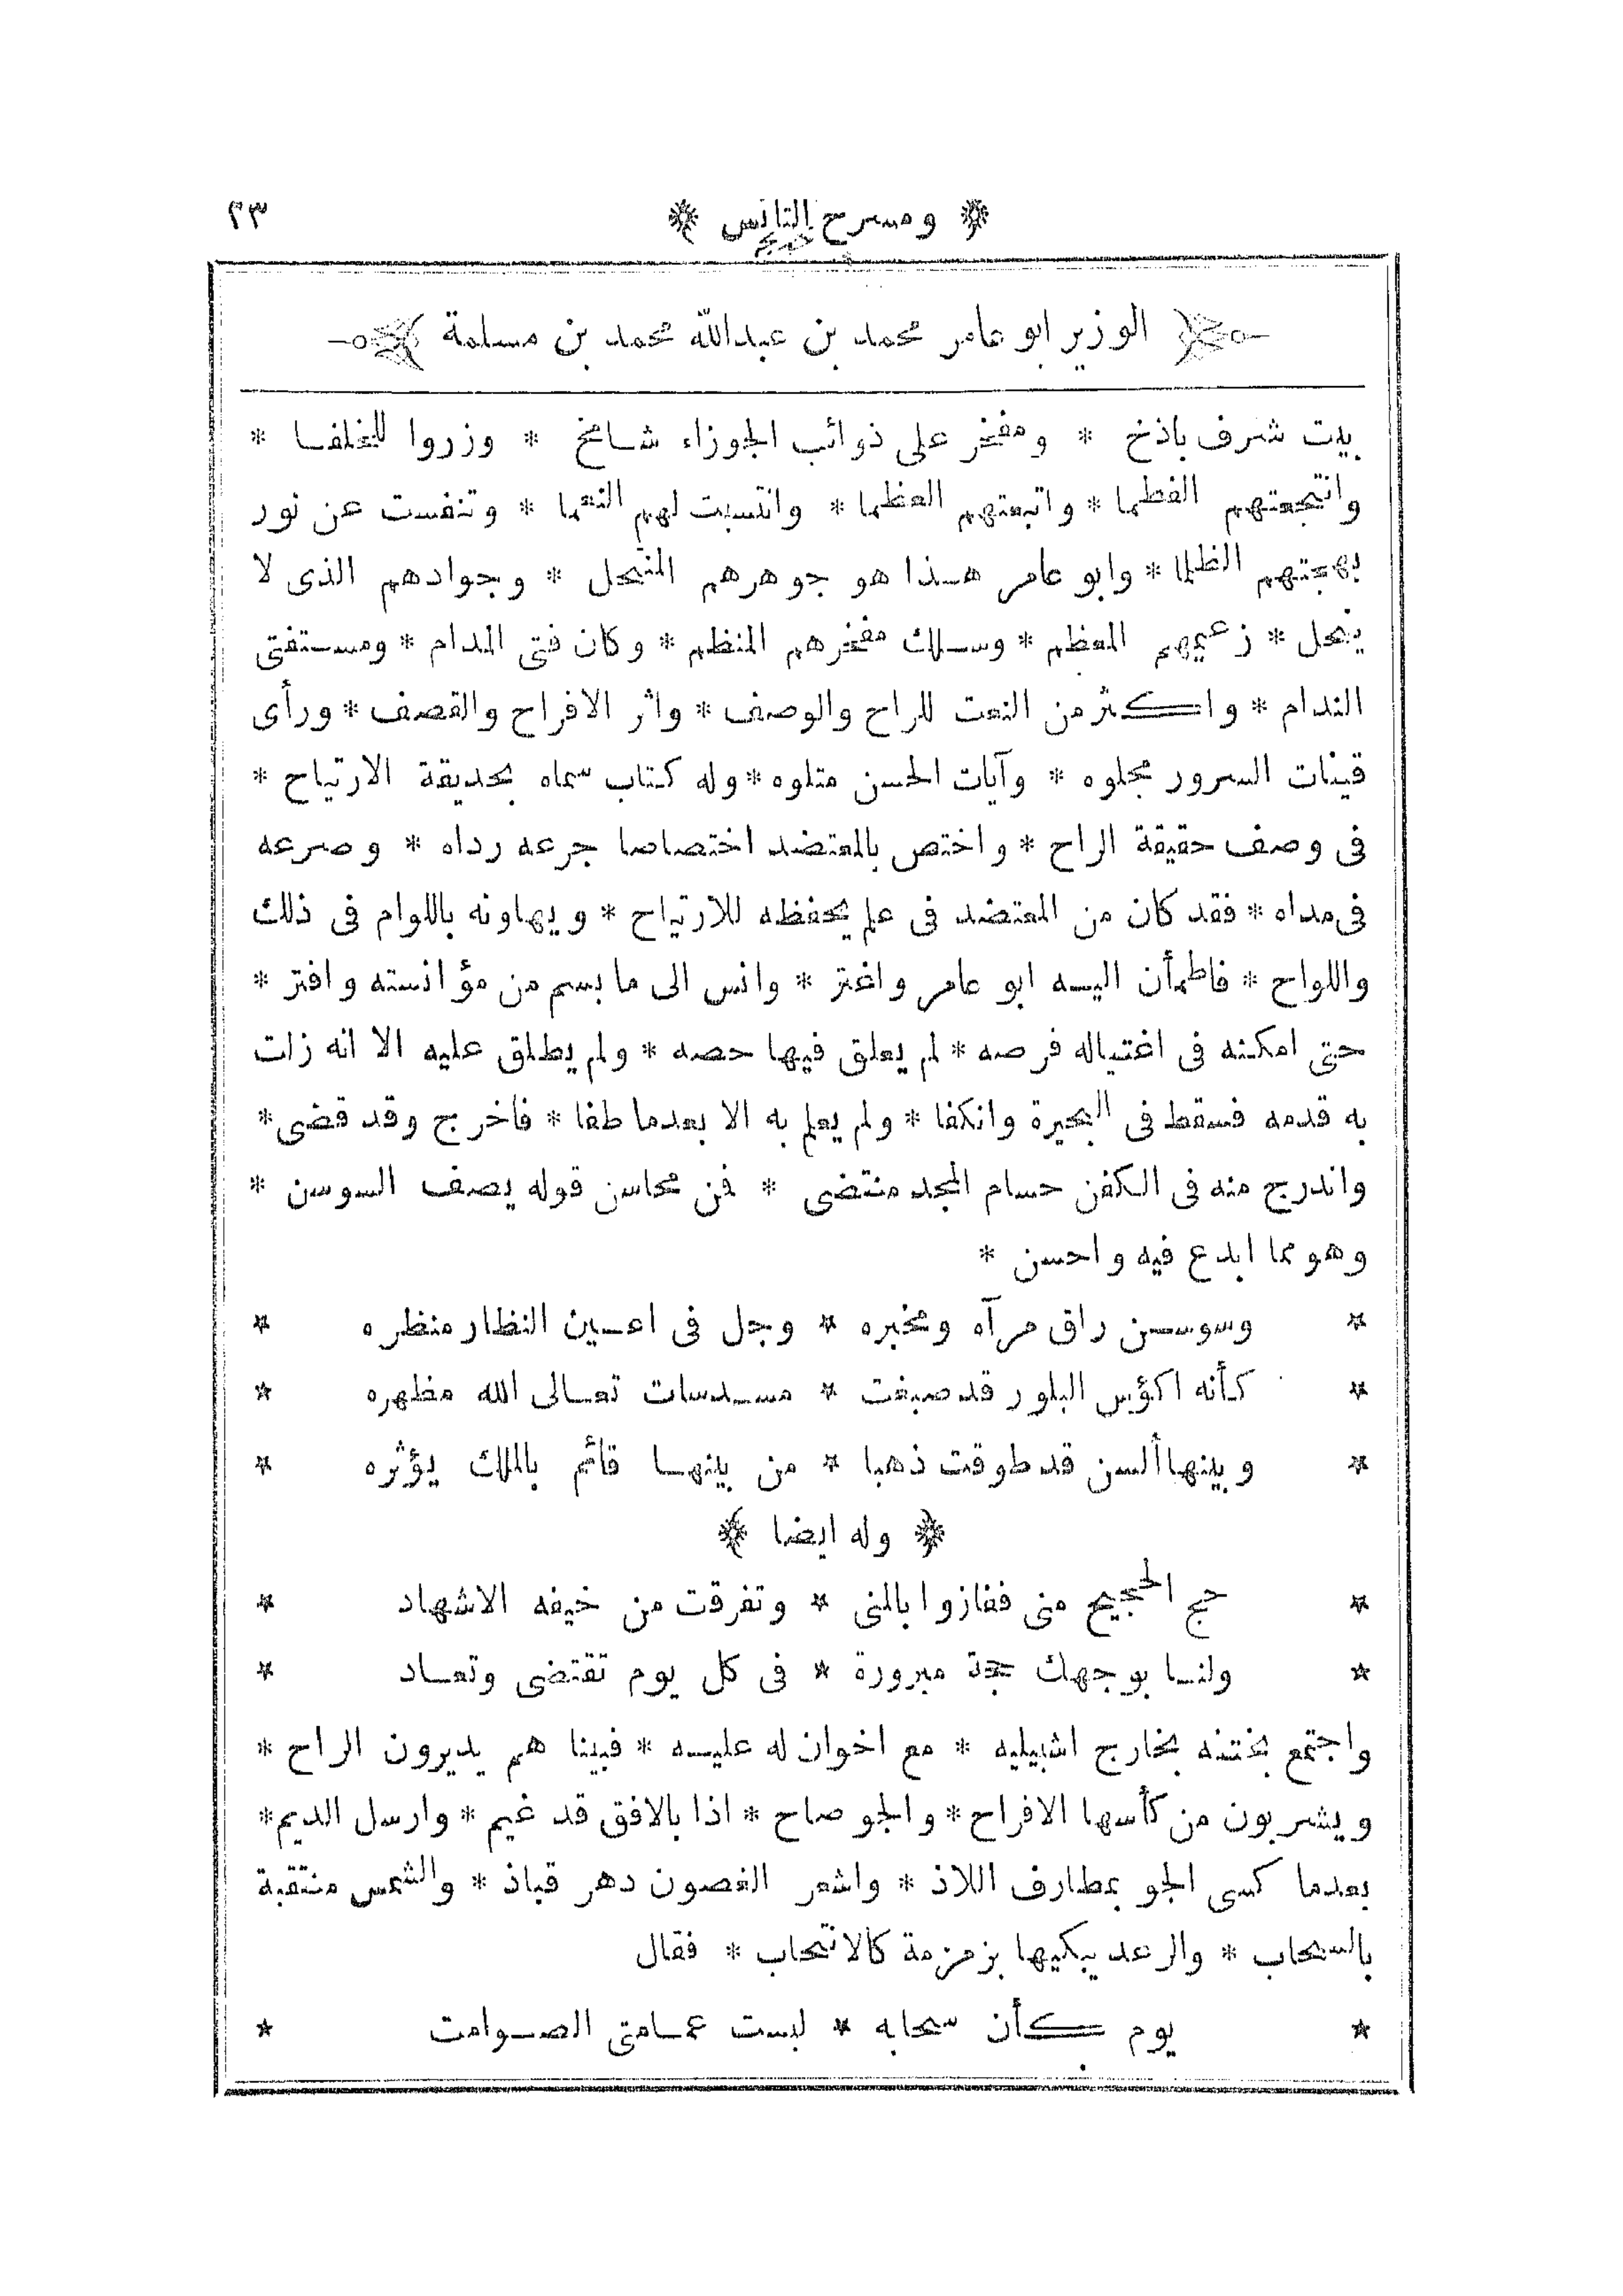 ﴿ ومسرح التأنس ﴾ ٢٣
الوزير ابو عامر محمد بن عبدالله محمد بن مسلمة
بيت شرف باذخ * ومفخر على ذوائب الجوزاء شامخ * وزروا للخلفا *
وانتجعتهم الفطما * واتبعتهم العظما * وانتسبت لهم النعما * وتنفست عن نور
بهجتهم الظلما * وابو عامر هذا هو جوهرهم المنتحل * وجوادهم الذى لا
ينحل * زعيمهم المعظم * وسلك مفخرهم المنظم * وكان فتى المدام * ومستفتى
الندام * واكثر من النعت للراح والوصف * واثر الافراح والقصف * ورأى
قينات السرور مجلوه * وآيات الحسن متلوه * وله كتاب سماه بحديقة الارتياح *
فى وصف حقيقة الراح * واختص بالمعتضد اختصاصا جرعه رداه * وصرعه
فى مداه * فقد كان من المعتضد فى علم يحفظه للارتياح * ويهاونه باللوام فى ذلك
واللواح * فاطمأن اليه ابو عامر واغتر * وانس الى ما بسم من مؤانسته وافتر *
حتى امكنه فى اغتياله فرصه * لم يعلق فيها حصه * ولم يطلق عليه الا انه زلت
به قدمه فسقط فى البحيرة وانكفا * ولم يعلم به الا بعدما طفا * فاخرج وقد قضى *
واندرج منه فى الكفن حسام المجد منتضى * فمن محاسن قوله يصف السوسن *
وهو مما ابدع فيه واحسن *
* وسوسن راق مرآه ومخبره * وجل فى اعين النظار منظره *
* كأنه اكؤس البلور قد صبغت * مسدسات تعالى الله مظهره *
* وبينها ألسن قد طوقت ذهبا * من بينها قائم بالملك يؤثره *
﴿ وله ايضا ﴾
* حج الحجيج منى ففازوا بالمنى * وتفرقت من خيفه الاشهاد *
* ولنا بوجهك حجة مبرورة * فى كل يوم تقتضى وتعاد *
واجتمع بختنه بخارج اشبيليه * مع اخوان له عليه * فبينا هم يديرون الراح *
ويشربون من كأسها الافراح * والجو صاح * اذا بالافق قد غيم * وارسل الديم *
بعدما كسى الجو بمطارف اللاذ * واشعر الغصون دهر قباذ * والشمس منتقبة
بالسحاب * والرعد يبكيها بزمزمة كالانتحاب * فقال
* يوم كأن سحابه * لبست عمامتى الصوامت *